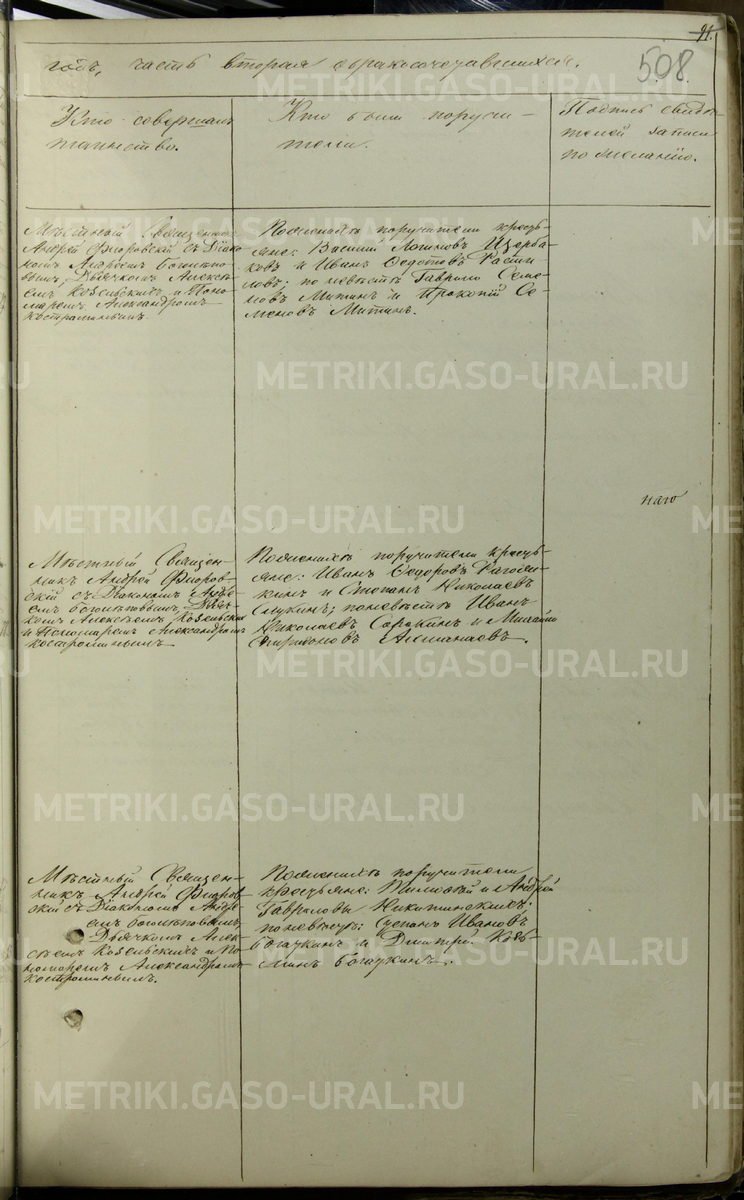 91.
508.
годъ, часть вторая о бракосочетавшихся.
Кто совершалъ
таинство.
Кто были поручи-
тели.
Подпись свидѣ-
телей записи
по желанію.
Мѣстный Священникъ
Андрей Флоровскій съ Діако-
номъ Андреемъ Боголѣпо-
вымъ, Дьячкомъ Алексѣ-
емъ Козельскимъ и Поно-
маремъ Александромъ
Костроминымъ.
По женихѣ поручители кресть-
яне: Василій Логиновъ Щерба-
ковъ и Иванъ Ѳедотовъ
по невѣстѣ Гаврило Семе-
новъ Митинъ и Прокопій Се-
меновъ Митинъ.
наго
Мѣстный Священ-
никъ Андрей Флоров-
скій съ Діакономъ Андре-
емъ Боголѣповымъ, Дьяч-
комъ Алексѣемъ Козельскимъ
и Пономаремъ Александромъ
Костроминымъ
По женихѣ поручители кресть-
яне: Иванъ Ѳедоровъ Рагози-
нъ и Степанъ Николаевъ
по невѣстѣ Иванъ
Николаевъ Сорокинъ и Михайло
Спиридоновъ
Мѣстный Священ-
никъ Андрей Флоров-
скій съ Діакономъ Андре-
емъ Боголѣповымъ,
Дьячкомъ Алек-
сѣемъ Козельскимъ и По-
номаремъ Александромъ
Костроминымъ.
По женихѣ поручители
крестьяне: Тимофей и Андрей
Гавриловы Никитинскихъ;
по невѣстѣ: Степанъ Ивановъ
Богаткинъ и Дмитрій Козь-
минъ Богаткинъ.
METRIKI.GASO-URAL.RU